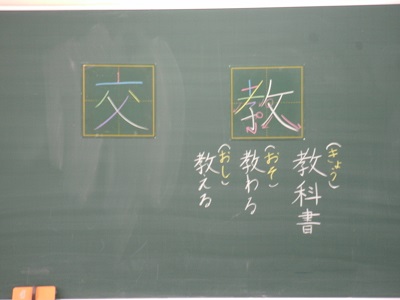 教
(きょう)
教科書
(おそ)
教わる
(おし)
教える
交